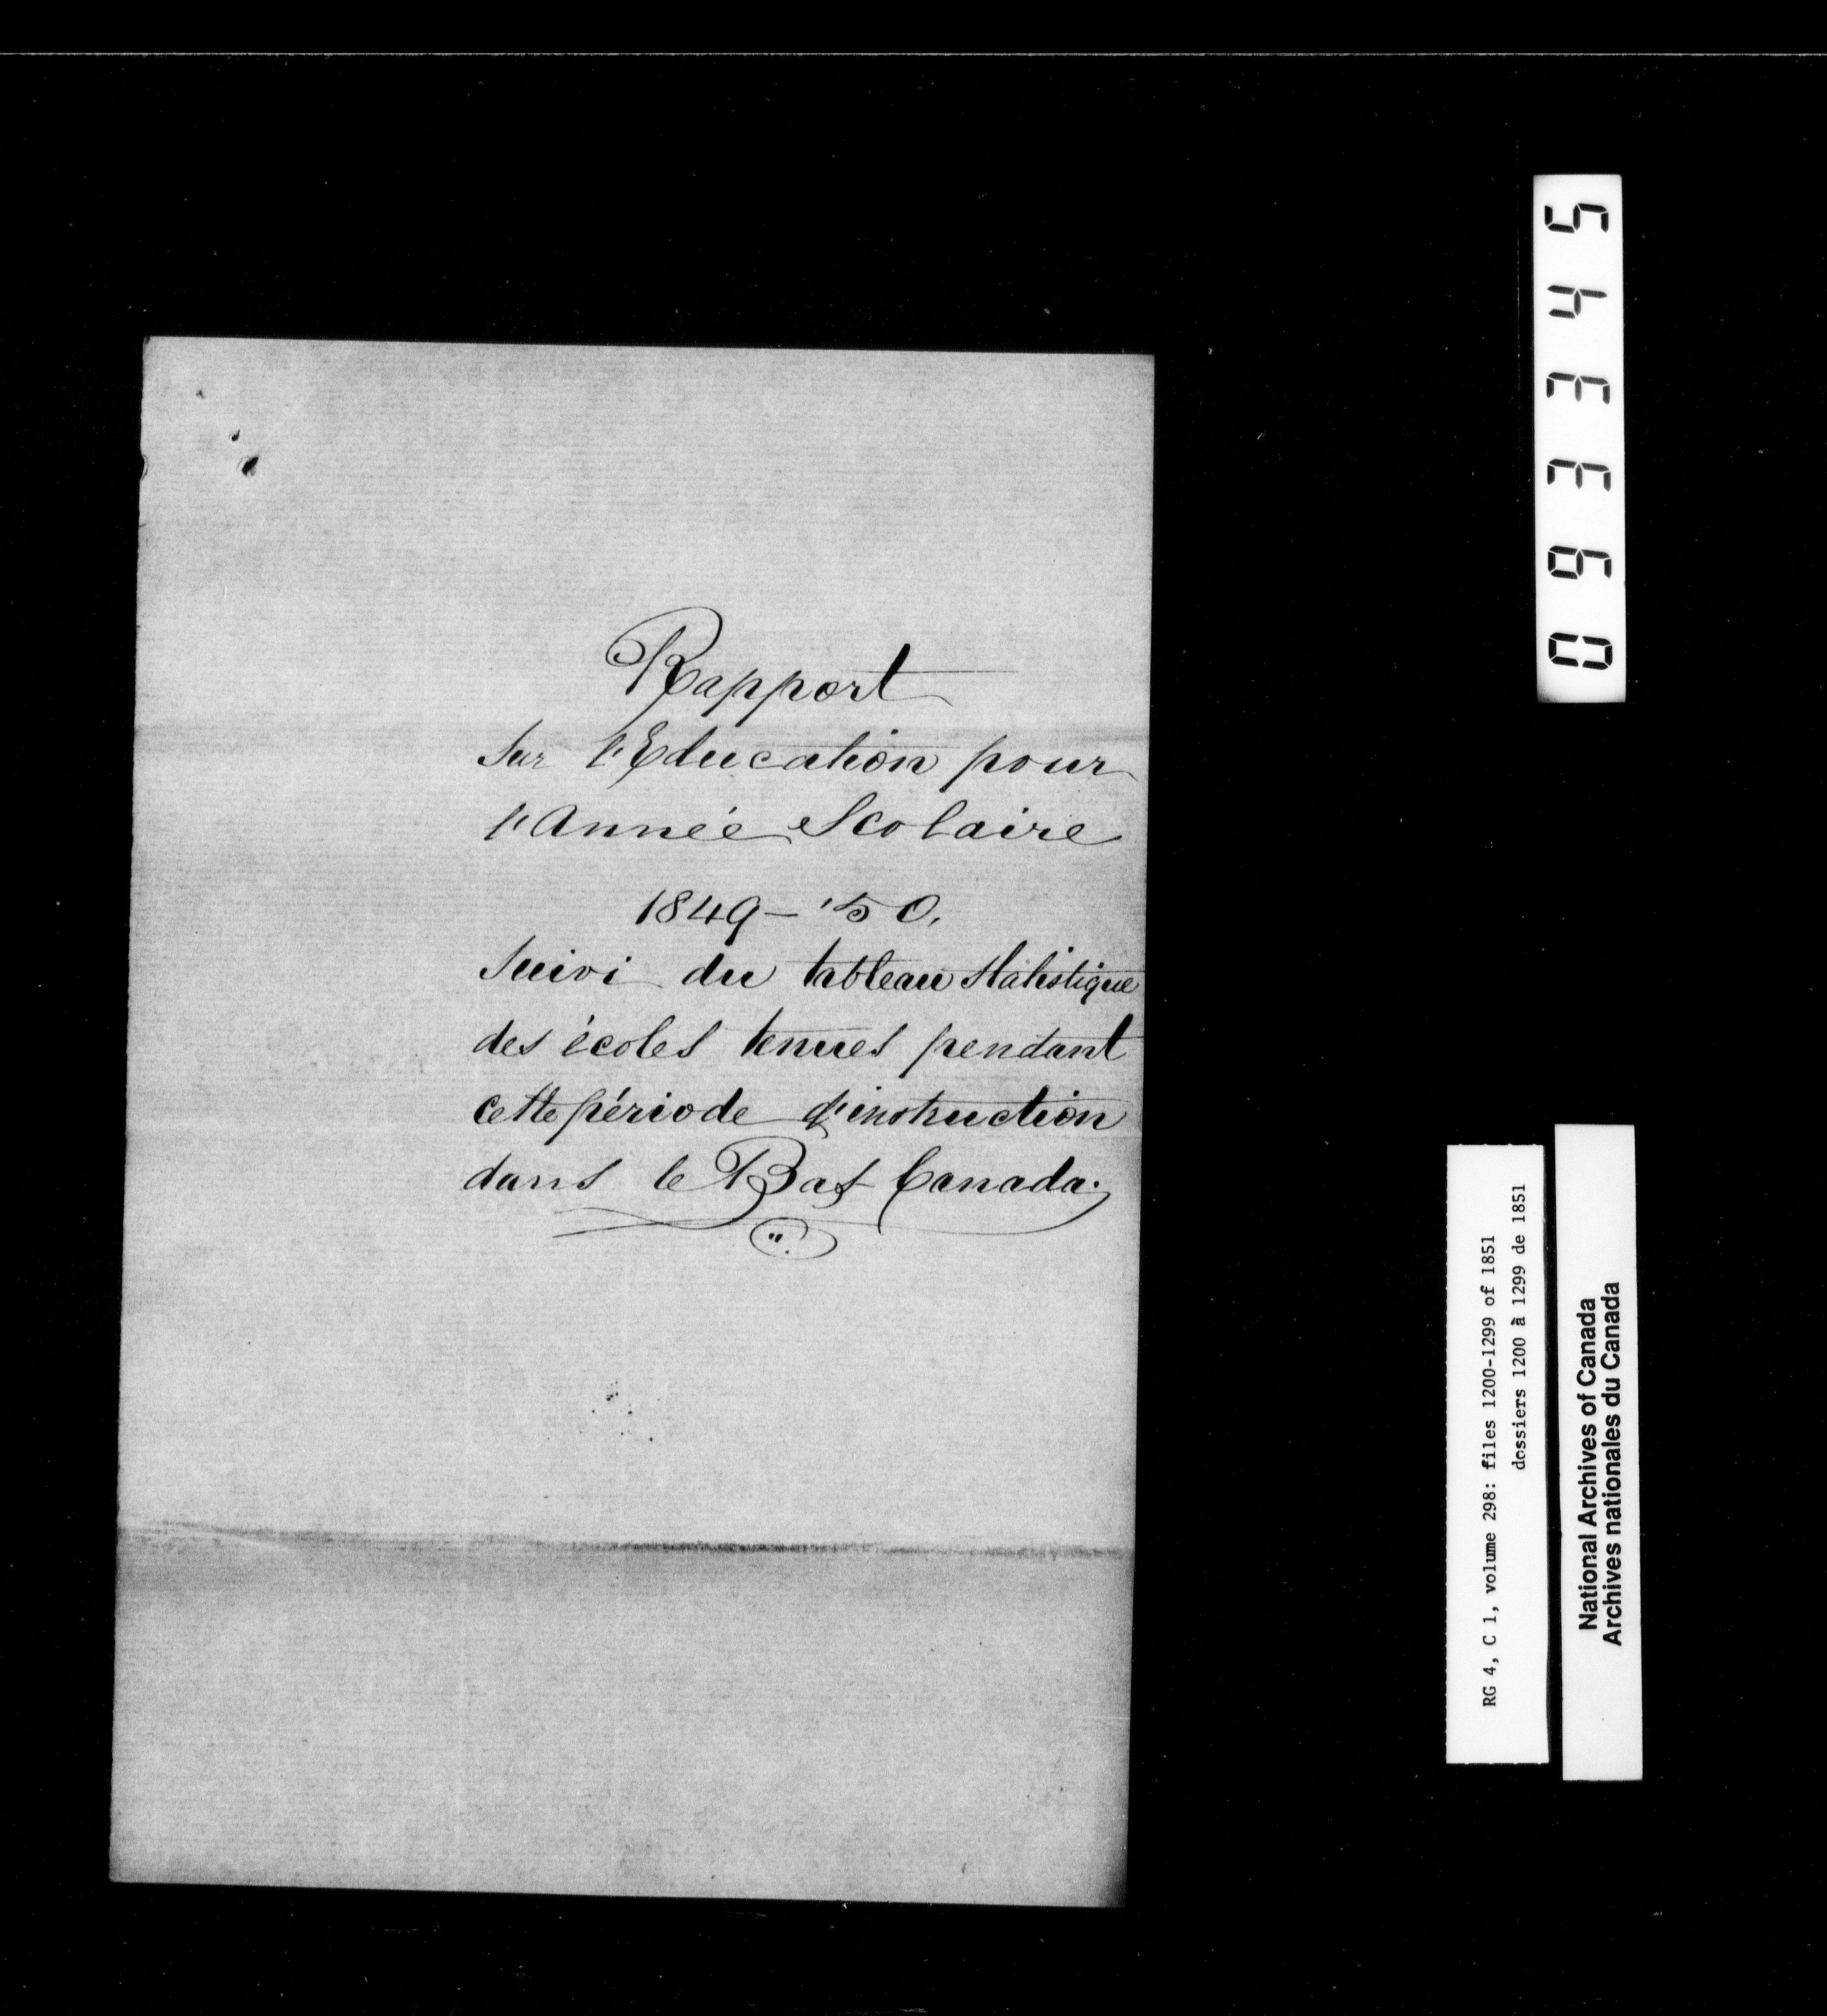 Rapport
sur l'Education pour
l'Année Scolaire
1849-'50.
Suivi du tableau statistique
des écoles tenues pendant
cette période d'instruction
dans le Bas Canada.
093345
RG 4, C 1, volume 298: files 1200-1299 of 1851
dossiers 1200 à 1299 de 1851
National Archives of Canada
Archives nationales du Canada